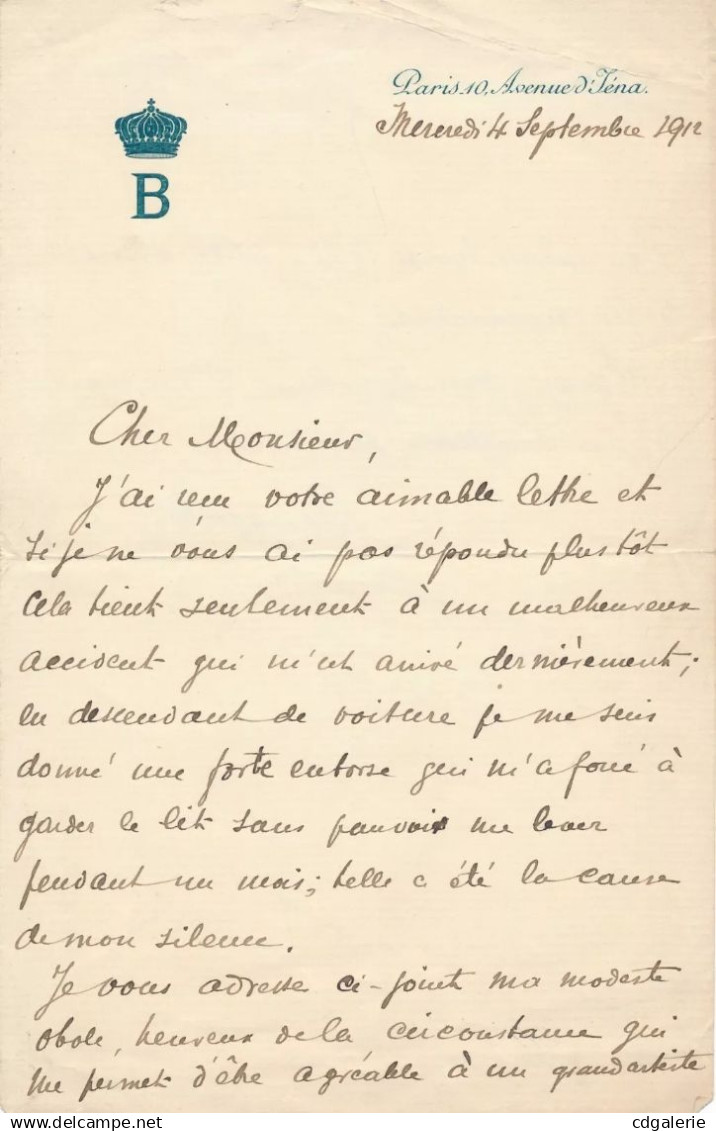 Paris_10, Avenue d'Iéna.
Mercredi 4 Septembre 1912
B
Cher Monsieur,
J'ai reçu votre aimable lettre et
si je ne vous ai pas répondu plus tôt
cela tient seulement à un malheureux
accident qui m'est arrivé dernièrement;
en descendant de voiture je me suis
donné une forte entorse qui m'a forcé à
garder le lit sans pouvoir me lever
pendant un mois; telle a été la cause
de mon silence.
Je vous adresse ci-joint ma modeste
obole, heureux de la circonstance qui
me permet d'être agréable à un grand artiste
www.delcampe.net
cdgalerie